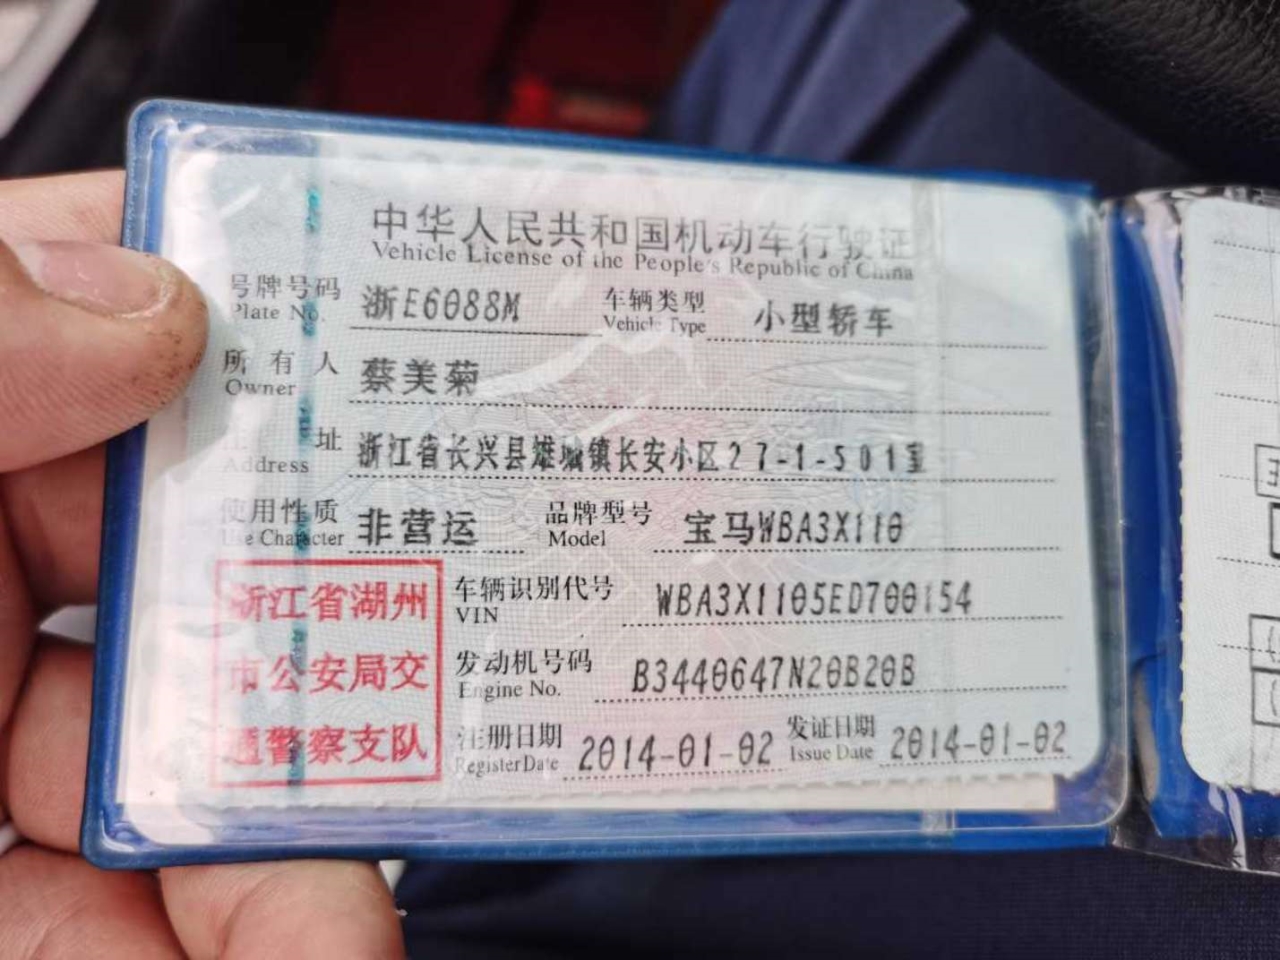 中华人民共和国机动车行驶证
Vehicle License of the People's Republic of China
号牌号码 浙E6088M 车辆类型 小型轿车
Plate No. Vehicle Type
所有人 蔡美菊
Owner
住址 浙江省长兴县雉城镇长安小区27-1-501室
Address
使用性质 非营运 品牌型号 宝马WBA3X110
Use Character Model
浙江省湖州
市公安局交
通警察支队
车辆识别代号 WBA3X1105ED700154
VIN
发动机号码 B3440647N20B20B
Engine No.
注册日期 2014-01-02 发证日期 2014-01-02
Register Date Issue Date